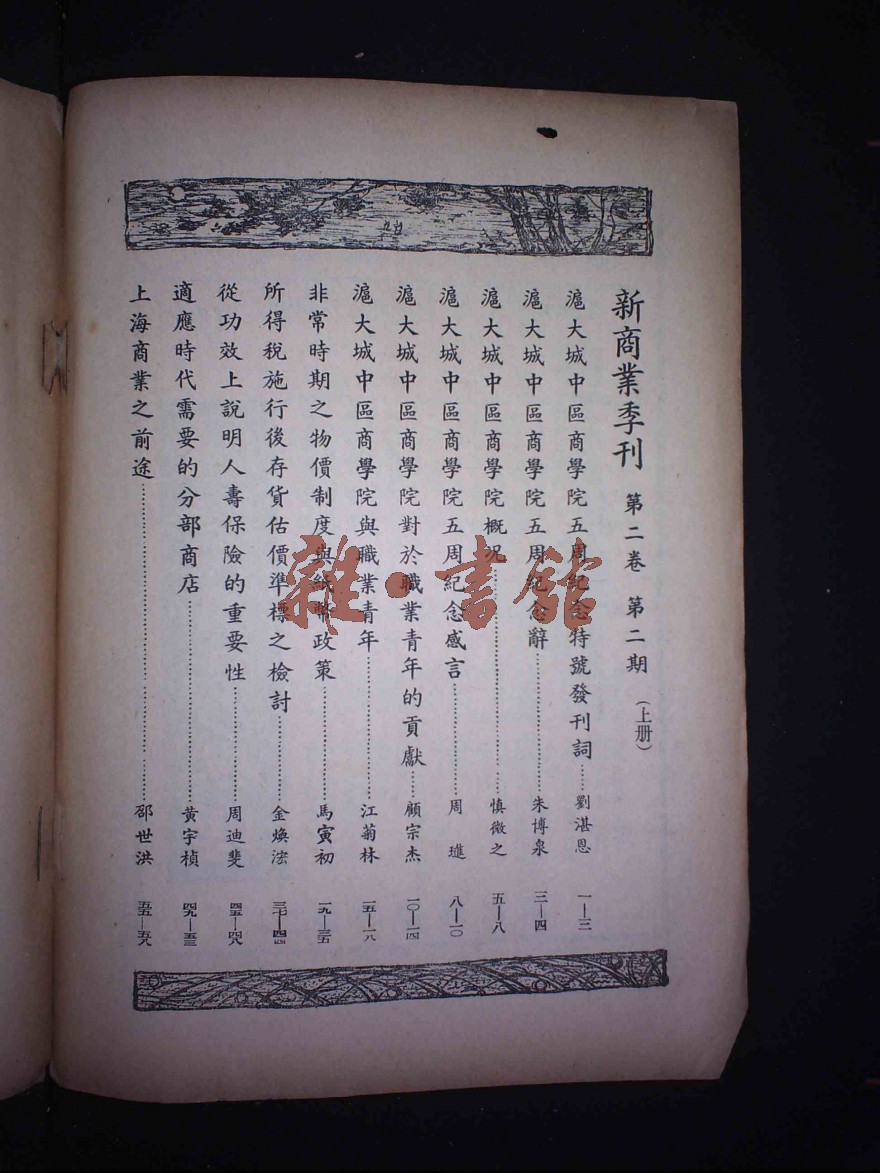 新商業季刊 第二卷 第二期 (上册)
滬大城中區商學院五周紀念特號發刊詞……劉湛恩 一—三
滬大城中區商學院五周紀念辭……朱博泉 三—四
滬大城中區商學院概况……慎微之 五—八
滬大城中區商學院五周紀念感言……周 八—一〇
滬大城中區商學院對於職業青年的貢獻……顧宗杰 一〇—一四
滬大城中區商學院與職業青年……江菊林 一五—一八
非常時期之物價制度與紙幣政策……馬寅初 一九—三五
所得稅施行後存貨估價準標之檢討……金煥 三七—四四
從功效上說明人壽保險的重要性……周迪斐 四五—四八
適應時代需要的分部商店……黃宇楨 四九—五三
上海商業之前途……邵世洪 五五—五九
雜·書館